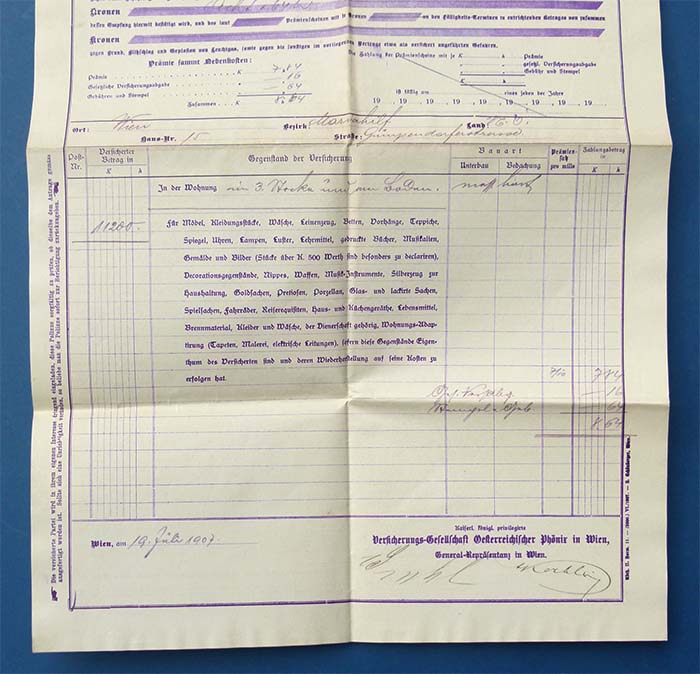 Kronen
dessen Empfang hiermit bestätigt wird, und das laut Prämienscheinen mit je Kronen an den Fälligkeits-Terminen zu entrichtenden Betrages von zusammen
Kronen
gegen Brand, Blitzschlag und Explosion von Leuchtgas, sowie gegen die sonstigen im vorliegenden Vertrage etwa als versichert angeführten Gefahren.
Prämie sammt Nebenkosten:
Prämie K 7.84
Gesetzliche Versicherungsabgabe 16
Gebühren und Stempel 64
Zusammen K 8.64
Die Zahlung der Prämienscheine mit je K h
Prämie
gesetzl. Versicherungsabgabe
Gebühr und Stempel
ist fällig am eines jeden der Jahre
19 19 19 19 19 19 19
Ort: Wien Bezirk Mariahilf Land
Haus-Nr. 15 Straße: Gumpendorferstrasse
Post-Nr.
Versicherter Betrag in
K h
Gegenstand der Versicherung
Bauart
Unterbau Bedachung
Prämien-satz pro mille
Zahlungsbetrag in
K h
In der Wohnung im 3. Stocke und am Boden. mass hart
11200.- Für Möbel, Kleidungsstücke, Wäsche, Leinenzeug, Betten, Vorhänge, Teppiche,
Spiegel, Uhren, Lampen, Luster, Lehrmittel, gedruckte Bücher, Musikalien,
Gemälde und Bilder (Stücke über K. 500 Werth sind besonders zu declariren),
Decorationsgegenstände, Nippes, Waffen, Musik-Instrumente, Silberzeug zur
Haushaltung, Goldsachen, Pretiosen, Porzellan, Glas- und lackirte Sachen,
Spielsachen, Fahrräder, Reiserequisiten, Haus- und Küchengeräthe, Lebensmittel,
Brennmaterial, Kleider und Wäsche, der Dienerschaft gehörig, Wohnungs-Adap-
tirung (Tapeten, Malerei, elektrische Leitungen), sofern diese Gegenstände Eigen-
thum des Versicherten sind und deren Wiederherstellung auf seine Kosten zu
erfolgen hat.
7/10 7 84
16
Stempel Geb. 64
8 64
Wien, am 19. Juli 1907.
Kaiserl. königl. privilegirte
Versicherungs-Gesellschaft Oesterreichischer Phönix in Wien,
General-Repräsentanz in Wien.
Die versicherte Partei wird in ihrem eigenen Interesse dringend eingeladen, diese Polizze sorgfältig zu prüfen, ob dieselbe dem Antrage gemäss
ausgefertigt worden ist. Sollte sich eine Unrichtigkeit vorfinden, so beliebe man die Polizze sofort zur Berichtigung zurückzugeben.